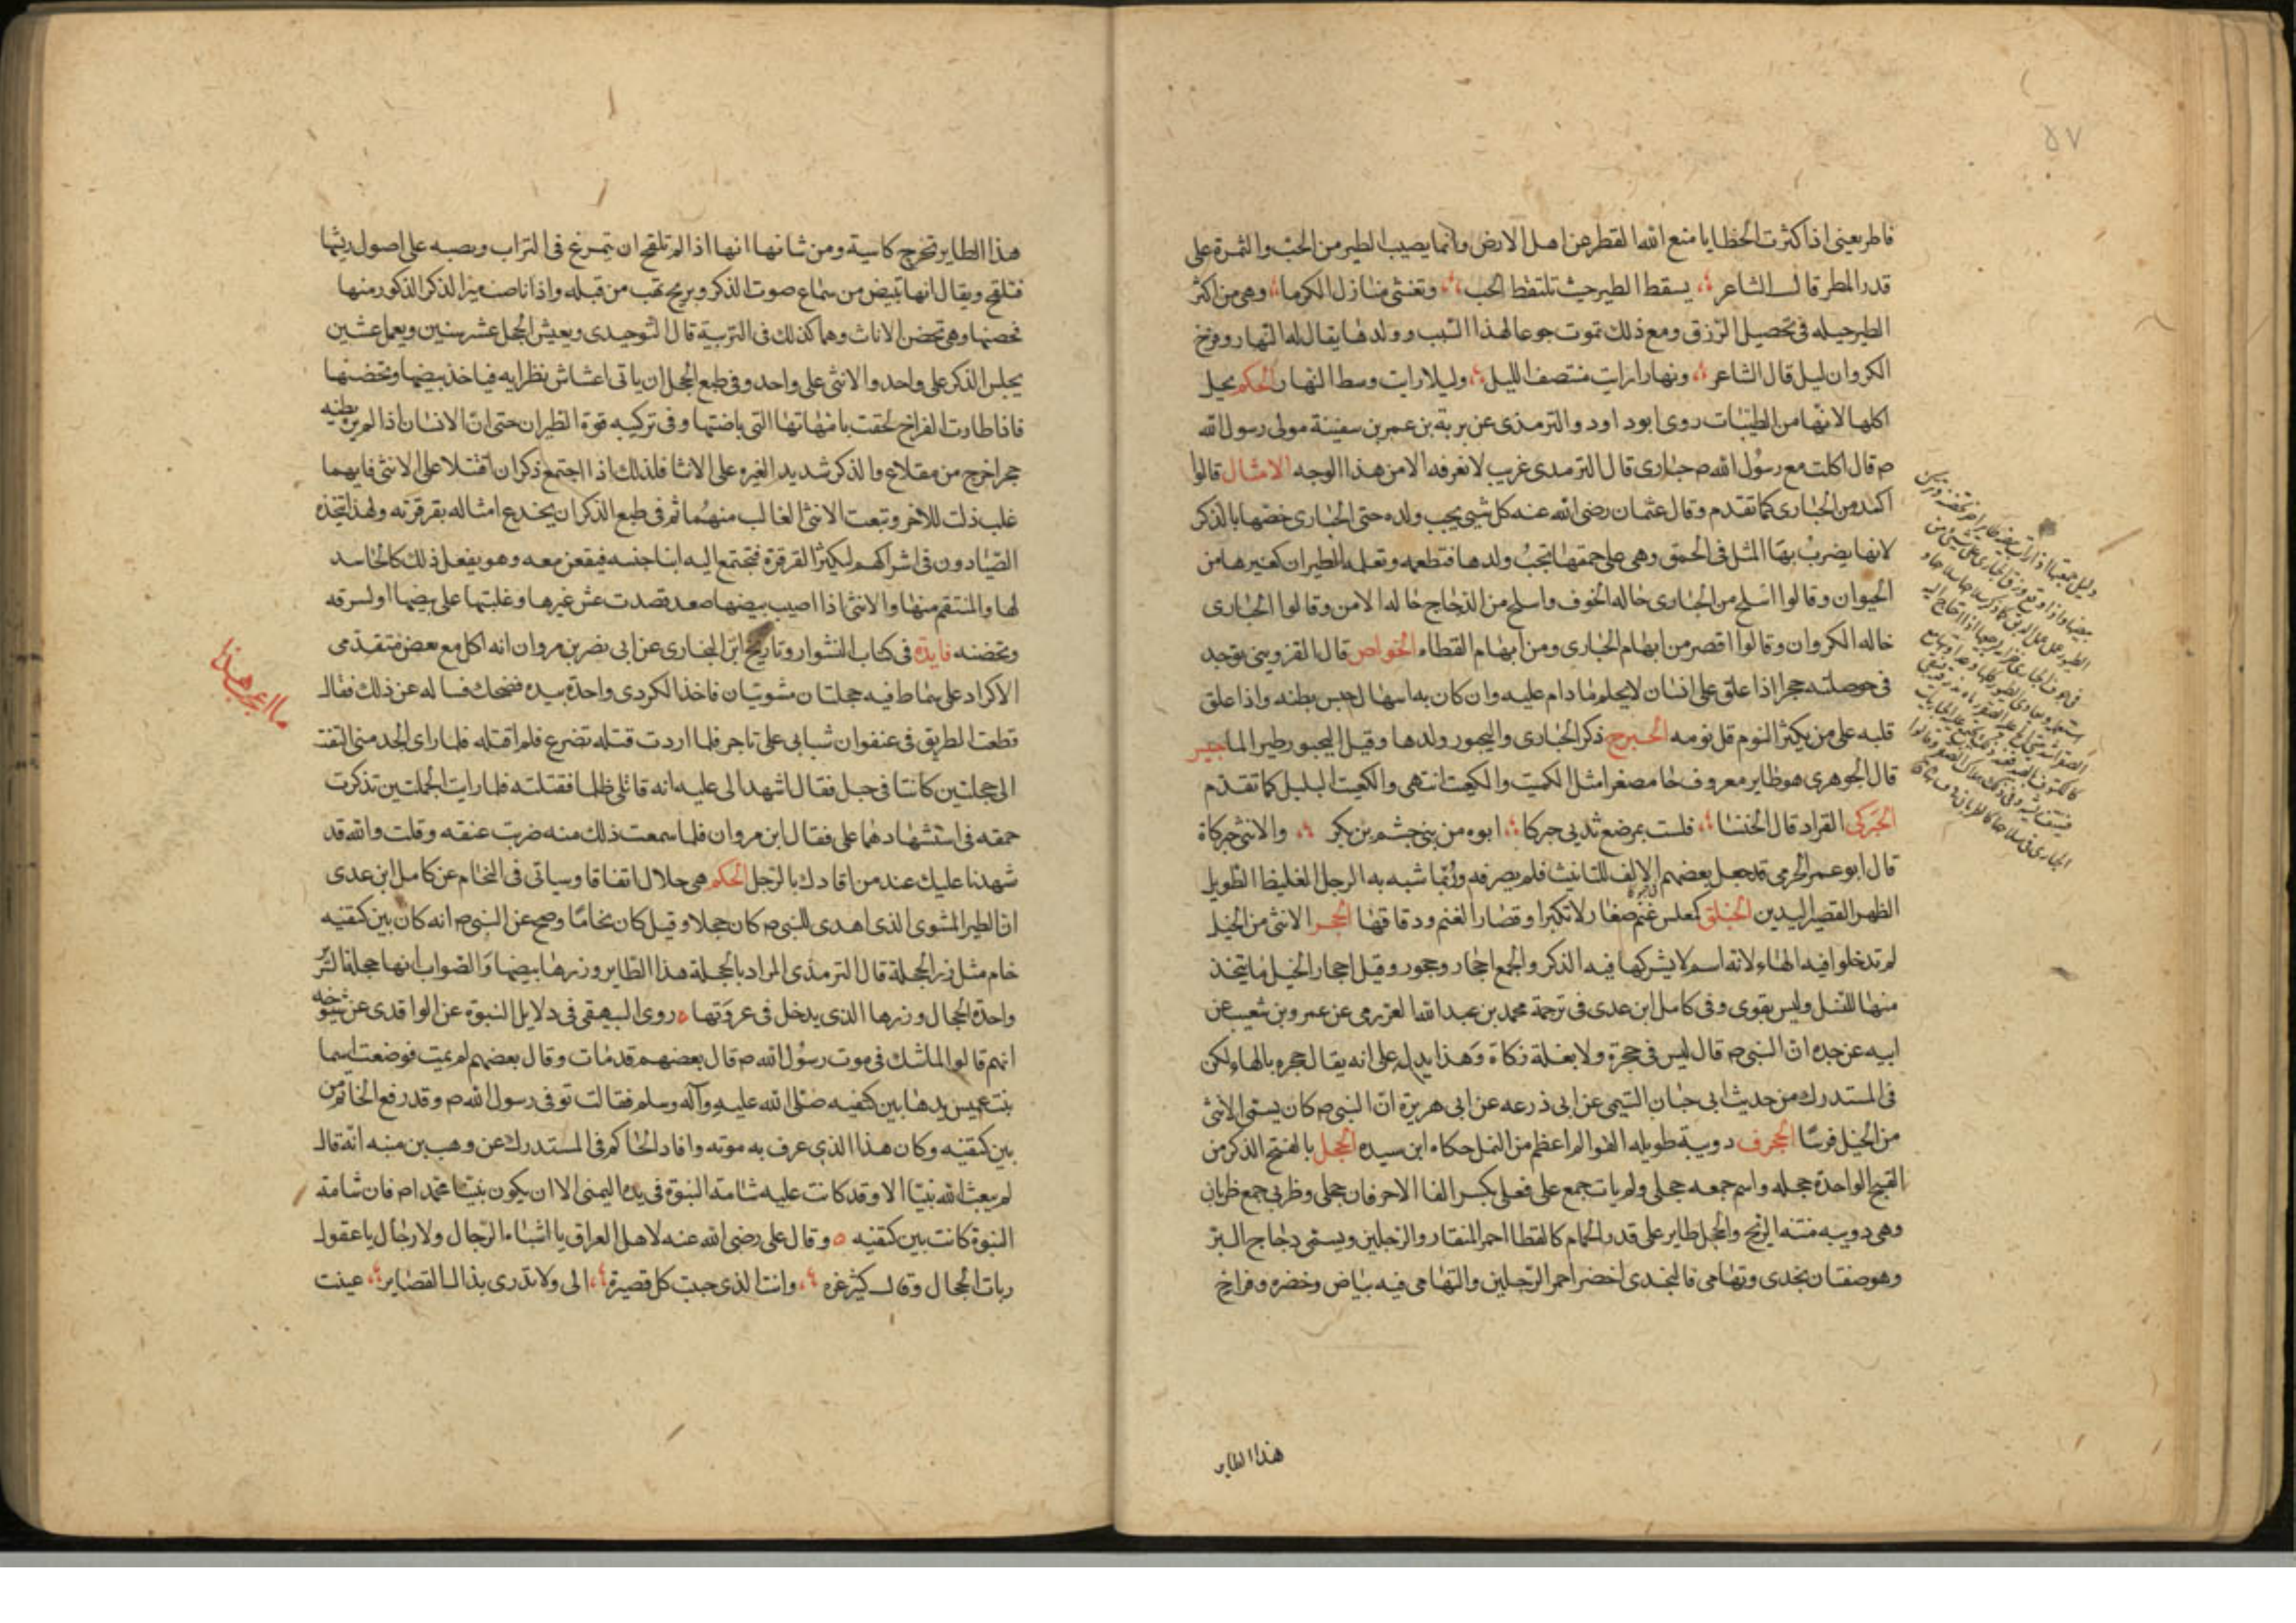 ٥٧
فاطر يعنى اذا كثرت الخطايا منع الله القطر عن اهل الارض وانما يصيب الطير من الحب والثمرة على
قدر المطر قال الشاعر يسقط الطير حيث تلتقط الحب وتغشى منازل الكرما وهى من اكثر
الطير حيله فى تحصيل الرزق ومع ذلك تموت جوعا لهذا السبب وولدها يقال له النهار وفرخ
الكروان ليل قال الشاعر ونهارا رايت منتصف الليل وليلا رايت وسط النهار الحكم يحل
اكلها لانها من الطيبات روى ابو داود والترمذى عن بريه بن عمر بن سفينة مولى رسول الله
ص قال اكلت مع رسول الله ص حبارى قال الترمذى غريب لا نعرفه الا من هذا الوجه الامثال قالوا
اكمد من الحبارى كما تقدم وقال عثمان رضى الله عنه كل شيى يحب ولده حتى الحبارى خصها بالذكر
لانها يضرب بها المثل فى الحمق وهى على حمقها تحب ولدها فتطعمه وتعلمه الطيران كغيرها من
الحيوان وقالوا اسلح من الحبارى حاله الخوف واسلح من الدجاج حاله الامن وقالوا الحبارى
خاله الكروان وقالوا اقصر من ابهام الحبارى ومن ابهام القطاء الخواص قال القزوينى يوجد
فى حوصلته حجر اذا علق على انسان لا يحلم ما دام عليه وان كان به اسهال حبس بطنه واذا علق
قلبه على من يكثر النوم قل نومه الحبرج ذكر الحبارى واليحبور ولدها وقيل اليحبور طير الما حبير
قال الجوهرى هو طاير معروف جا مصغرا مثل الكميت والكعيت انتهى والكعيت البلبل كما تقدم
الحبركى القراد قال الخنسا فلست بمرضع ثديى حبركا ابوه من بنى جشم بن بكر والانثى حبركاة
قال ابو عمر الجرمى قد جعل بعضهم الالف للتانيث فلم يصرفه وانما شبه به الرجل الغليظ الطويل
الظهر القصير اليدين الحبلق كعملس غنم صغار لا تكبر او قصار الغنم ودقاقها الحجر الانثى من الخيل
لم تدخلوا فيه الهاء لانه اسم لا يشركها فيه الذكر والجمع احجار وحجور وقيل احجار الخيل ما يتخذ
منها للنسل وليس بقوى وفى كامل ابن عدى فى ترجمة محمد بن عبد الله العزرمى عن عمرو بن شعيب عن
ابيه عن جده ان النبى ص قال ليس فى حجرة ولا بغلة زكاة وهذا يدل على انه يقال حجره بالهاء لكن
فى المستدرك من حديث ابى حيان التيمى عن ابى ذرعه عن ابى هريرة ان النبى ص كان يسمى الانثى
من الخيل فرسا الحجرف دويبة طويله القوائم اعظم من النمل حكاه ابن سيده الحجل بالفتح الذكر من
القبج الواحدة حجله واسم جمعه حجلى ولم يات جمع على فعلى بكسر الفا الا حرفان حجلى وظربى جمع ظربان
وهى دويبه منتنه الريح والحجل طاير على قدر الحمام كالقطا احمر المنقار والرجلين ويسمى دجاج البر
وهو صنفان نجدى وتهامى فالنجدى اخضر احمر الرجلين والتهامى فيه بياض وخضره وفراخ
هذا الطاير
هذا الطاير تخرج كاسية ومن شانها انها اذا لم تلقح ان تمرغ فى التراب وتصبه على اصول ريشها
فتلقح ويقال انها تبيض من سماع صوت الذكر وبريح تهب من قبله واذا باضت ميز الذكر الذكور منها
فحضنها وهى تحضن الاناث وهما كذلك فى التربية قال التوحيدى ويعيش الحجل عشر سنين ويعمل عشين
يجلس الذكر على واحد والانثى على واحد وفى طبع الحجل ان ياتى اعشاش نظرايه فياخذ بيضها وتحضنها
فاذا طارت الفراخ لحقت بامهاتها التى باضتها وفى تركيبه قوة الطيران حتى ان الانسان اذا لم يره يظنه
حجرا خرج من مقلاع والذكر شديد الغيره على الانثا فلذلك اذا اجتمع ذكران اقتتلا على الانثى فايهما
غلب ذلت للاخر وتبعت الانثى الغالب منهما ثم فى طبع الذكر ان يخدع امثاله بقرقرته ولهذا تتخذه
الصيادون فى اشراكهم ليكثر القرقرة فتجتمع اليه ابنا جنسه فيقعن معه وهو يفعل ذلك كالحاسد
لها والمنتقم منها والانثى اذا اصيب بيضها قصدت عش غيرها وغلبتها على بيضها او لسرقه
وتحضنه فايدة فى كتاب النشوار وتاريخ ابن النجارى عن ابى نصر بن مروان انه اكل مع بعض متقدمى
الاكراد على سماط فيه حجلتان مشويتان فاخذ الكردى واحدة بيده فضحك فساله عن ذلك فقال
قطعت الطريق فى عنفوان شبابى على تاجر فلما اردت قتله تضرع فلم اقتله فلما راى الجد منى التفت
الى حجلتين كانتا فى جبل فقال اشهدا لى عليه انه قاتلى ظلما فقتلته فلما رايت الحجلتين تذكرت
حمقه فى استشهادهما على فقال ابن مروان فلما سمعت ذلك منه ضربت عنقه وقلت والله قد
شهدنا عليك عند من اقادك بالرجل الحكم هى حلال اتفاقا وسياتى فى النحام عن كامل ابن عدى
ان الطير المشوى الذى اهدى للنبى ص كان حجلا وقيل كان نحاما وصح عن النبى ص انه كان بين كتفيه
خاتم مثل زر الحجلة قال الترمذى المراد بالحجلة هذا الطاير وزرها بيضها والصواب انها حجلة السرير
واحدة الحجال وزرها الذى يدخل فى عروتها روى البيهقى فى دلايل النبوة عن الواقدى عن شيوخه
انهم قالوا لما شك فى موت رسول الله ص قال بعضهم قد مات وقال بعضهم لم يمت فوضعت اسما
بنت عميس يدها بين كتفيه صلى الله عليه وآله وسلم فقالت توفى رسول الله ص وقد رفع الخاتم من
بين كتفيه وكان هذا الذى عرف به موته وافاد الحاكم فى المستدرك عن وهب بن منبه انه قال
لم يبعث الله نبيا الا وقد كانت عليه شامة النبوة فى يده اليمنى الا ان يكون نبينا محمد ا ص فان شامة
النبوة كانت بين كتفيه وقال على رضى الله عنه لاهل العراق يا اشباه الرجال ولا رجال يا عقول
ربات الحجال وقال كثير عزه وانت الذى حببت كل قصيرة الى ولا تدرى بذاك القصاير عينت